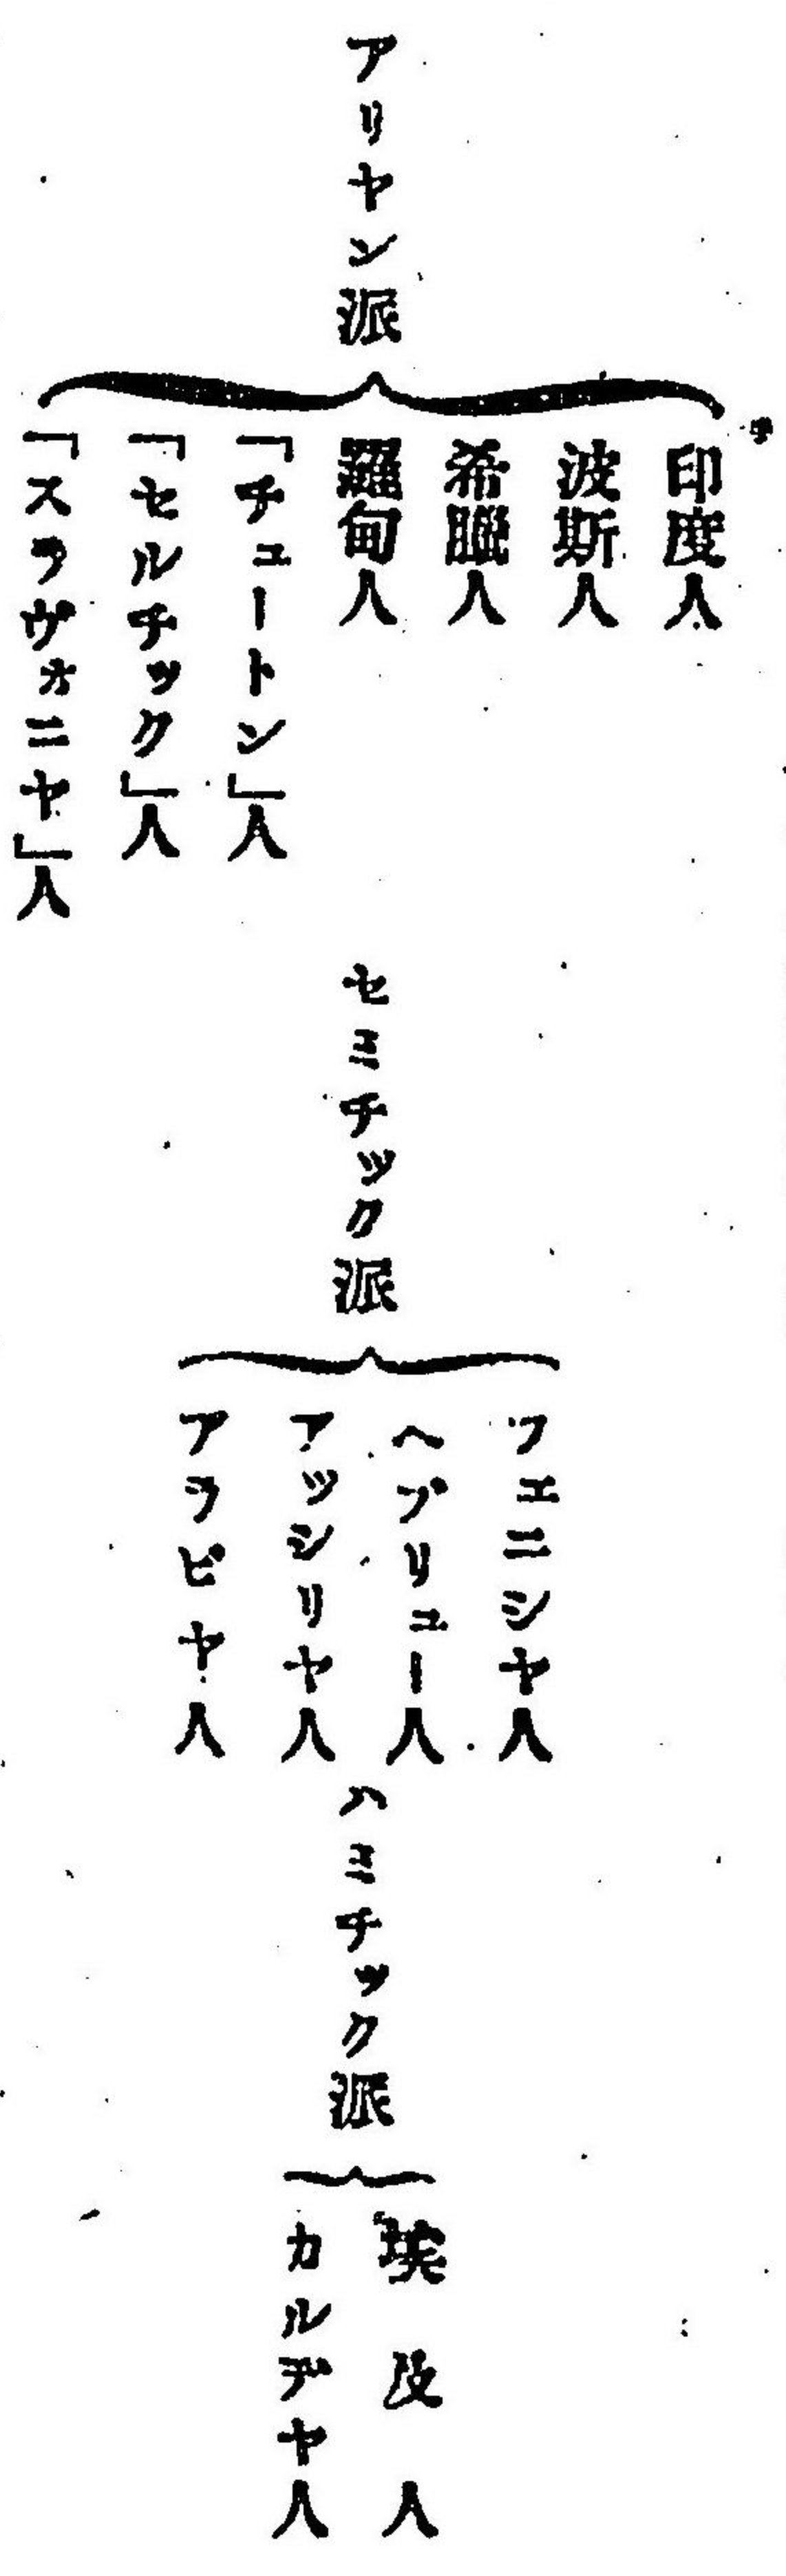 アリヤン派
印度人
波斯人
希臘人
羅甸人
「チュートン」人
「セルチック」人
「スラヴォニヤ」人
セミチック派
フェニシヤ人
ヘブリュー人
アッシリヤ人
アラビヤ人
ハミチック派
埃及人
カルデヤ人